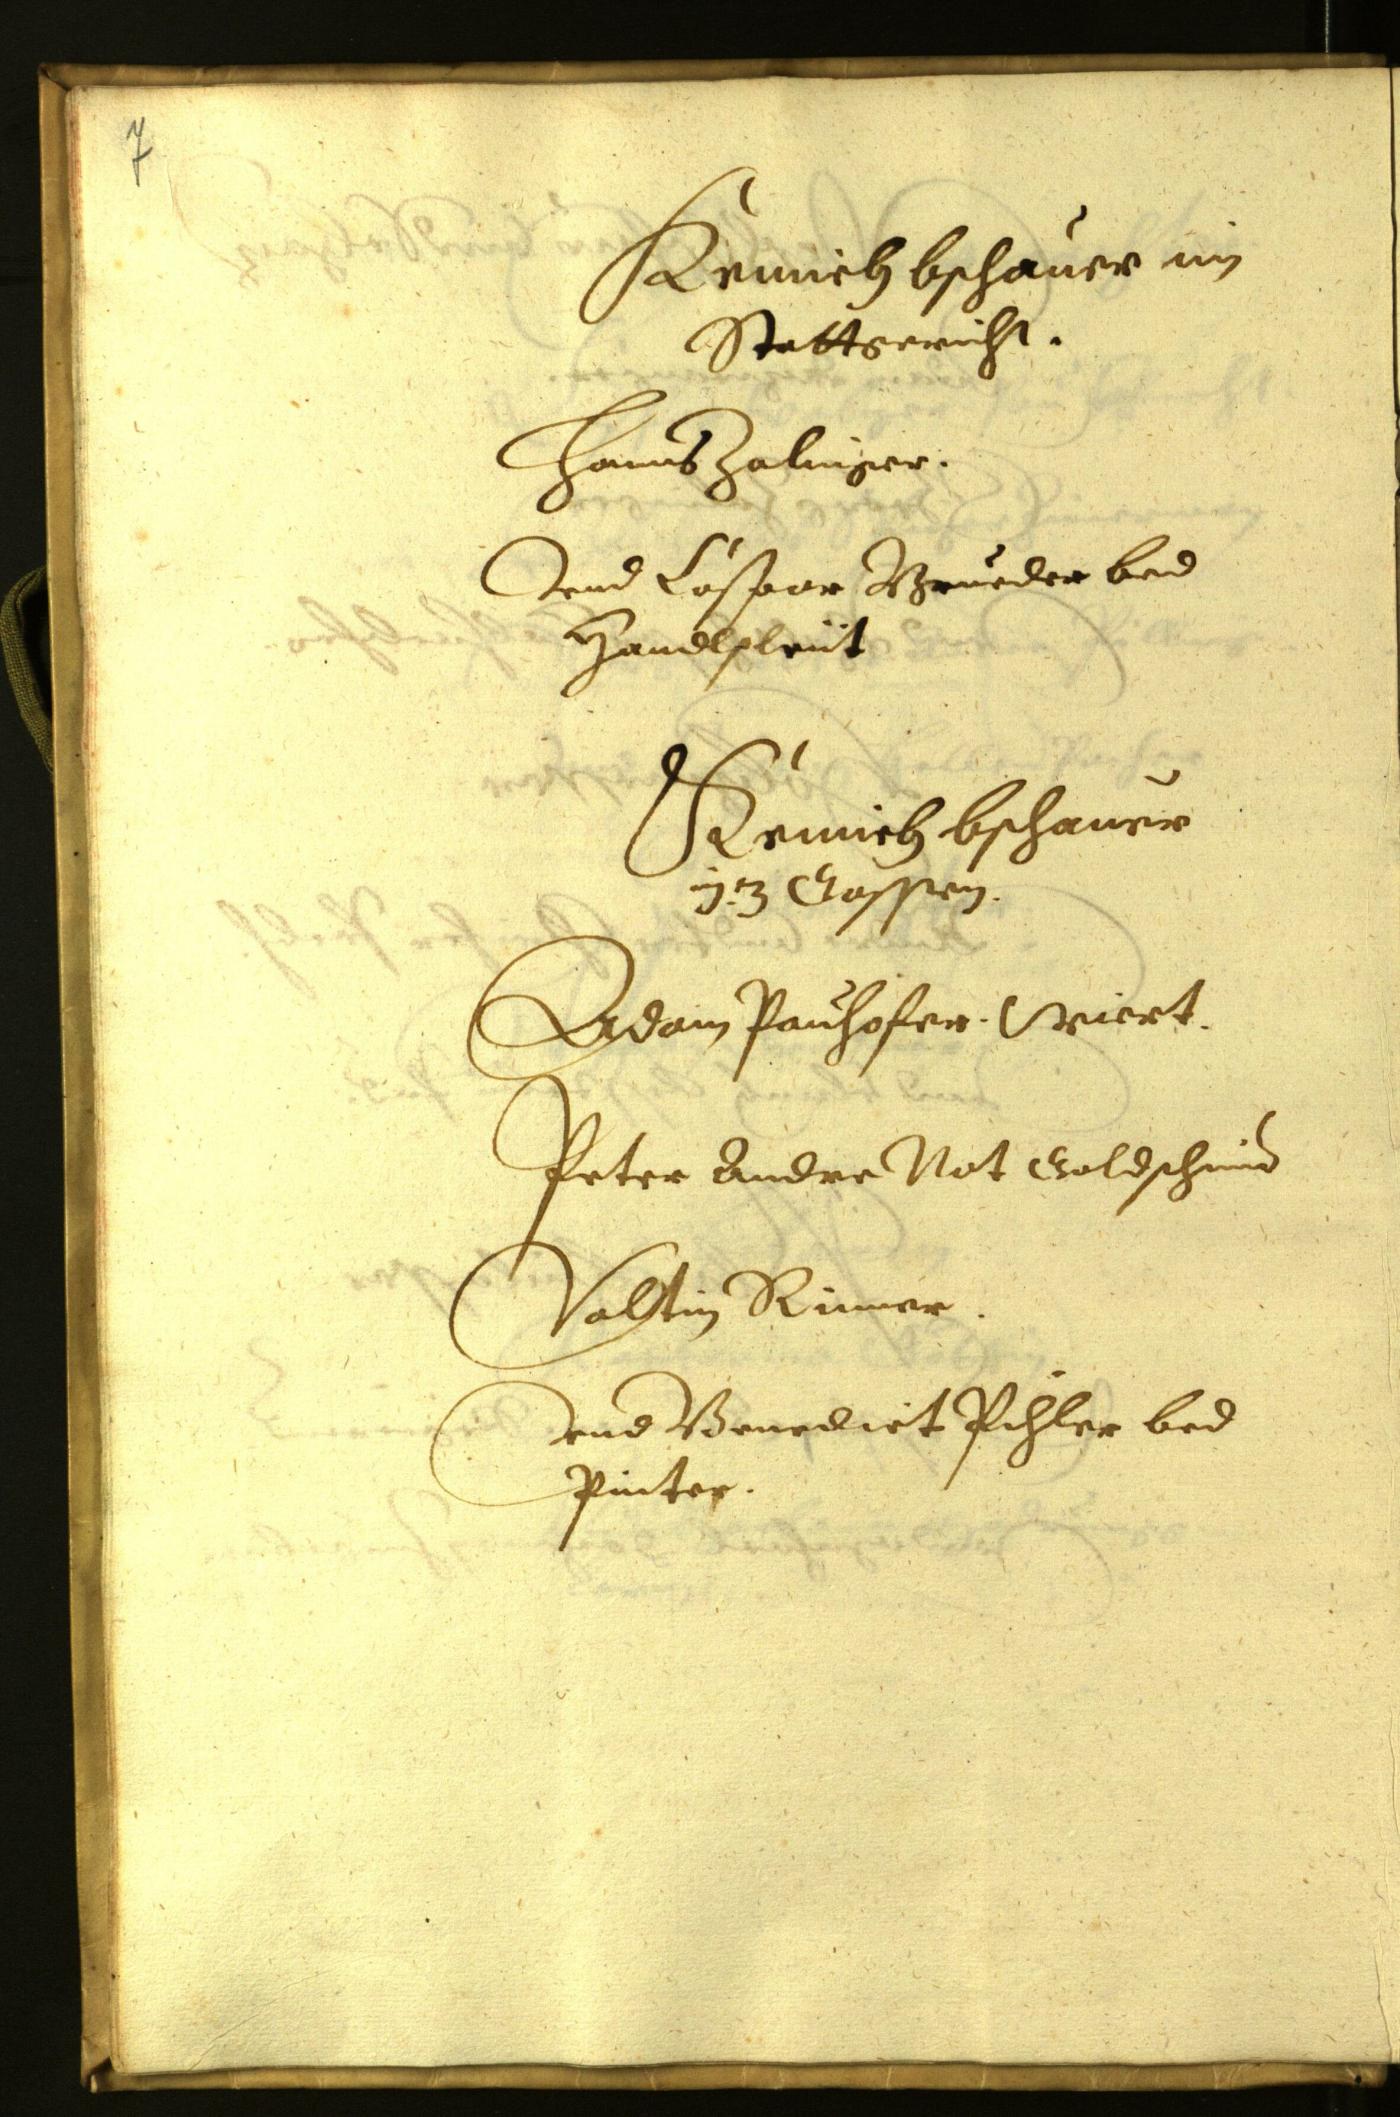 7
Kemich bschauer im
Stattgericht.
Hanns Zalinger.
Vnd Caspar Brueder bed
Handlsleüt
Kemich bschauer
in Gassen.
Adam Pauhofer. Wiert.
Peter Andre Not Goldschmid
Valtin Rimer.
Vnd Benedict Pihler bed
Pinter.